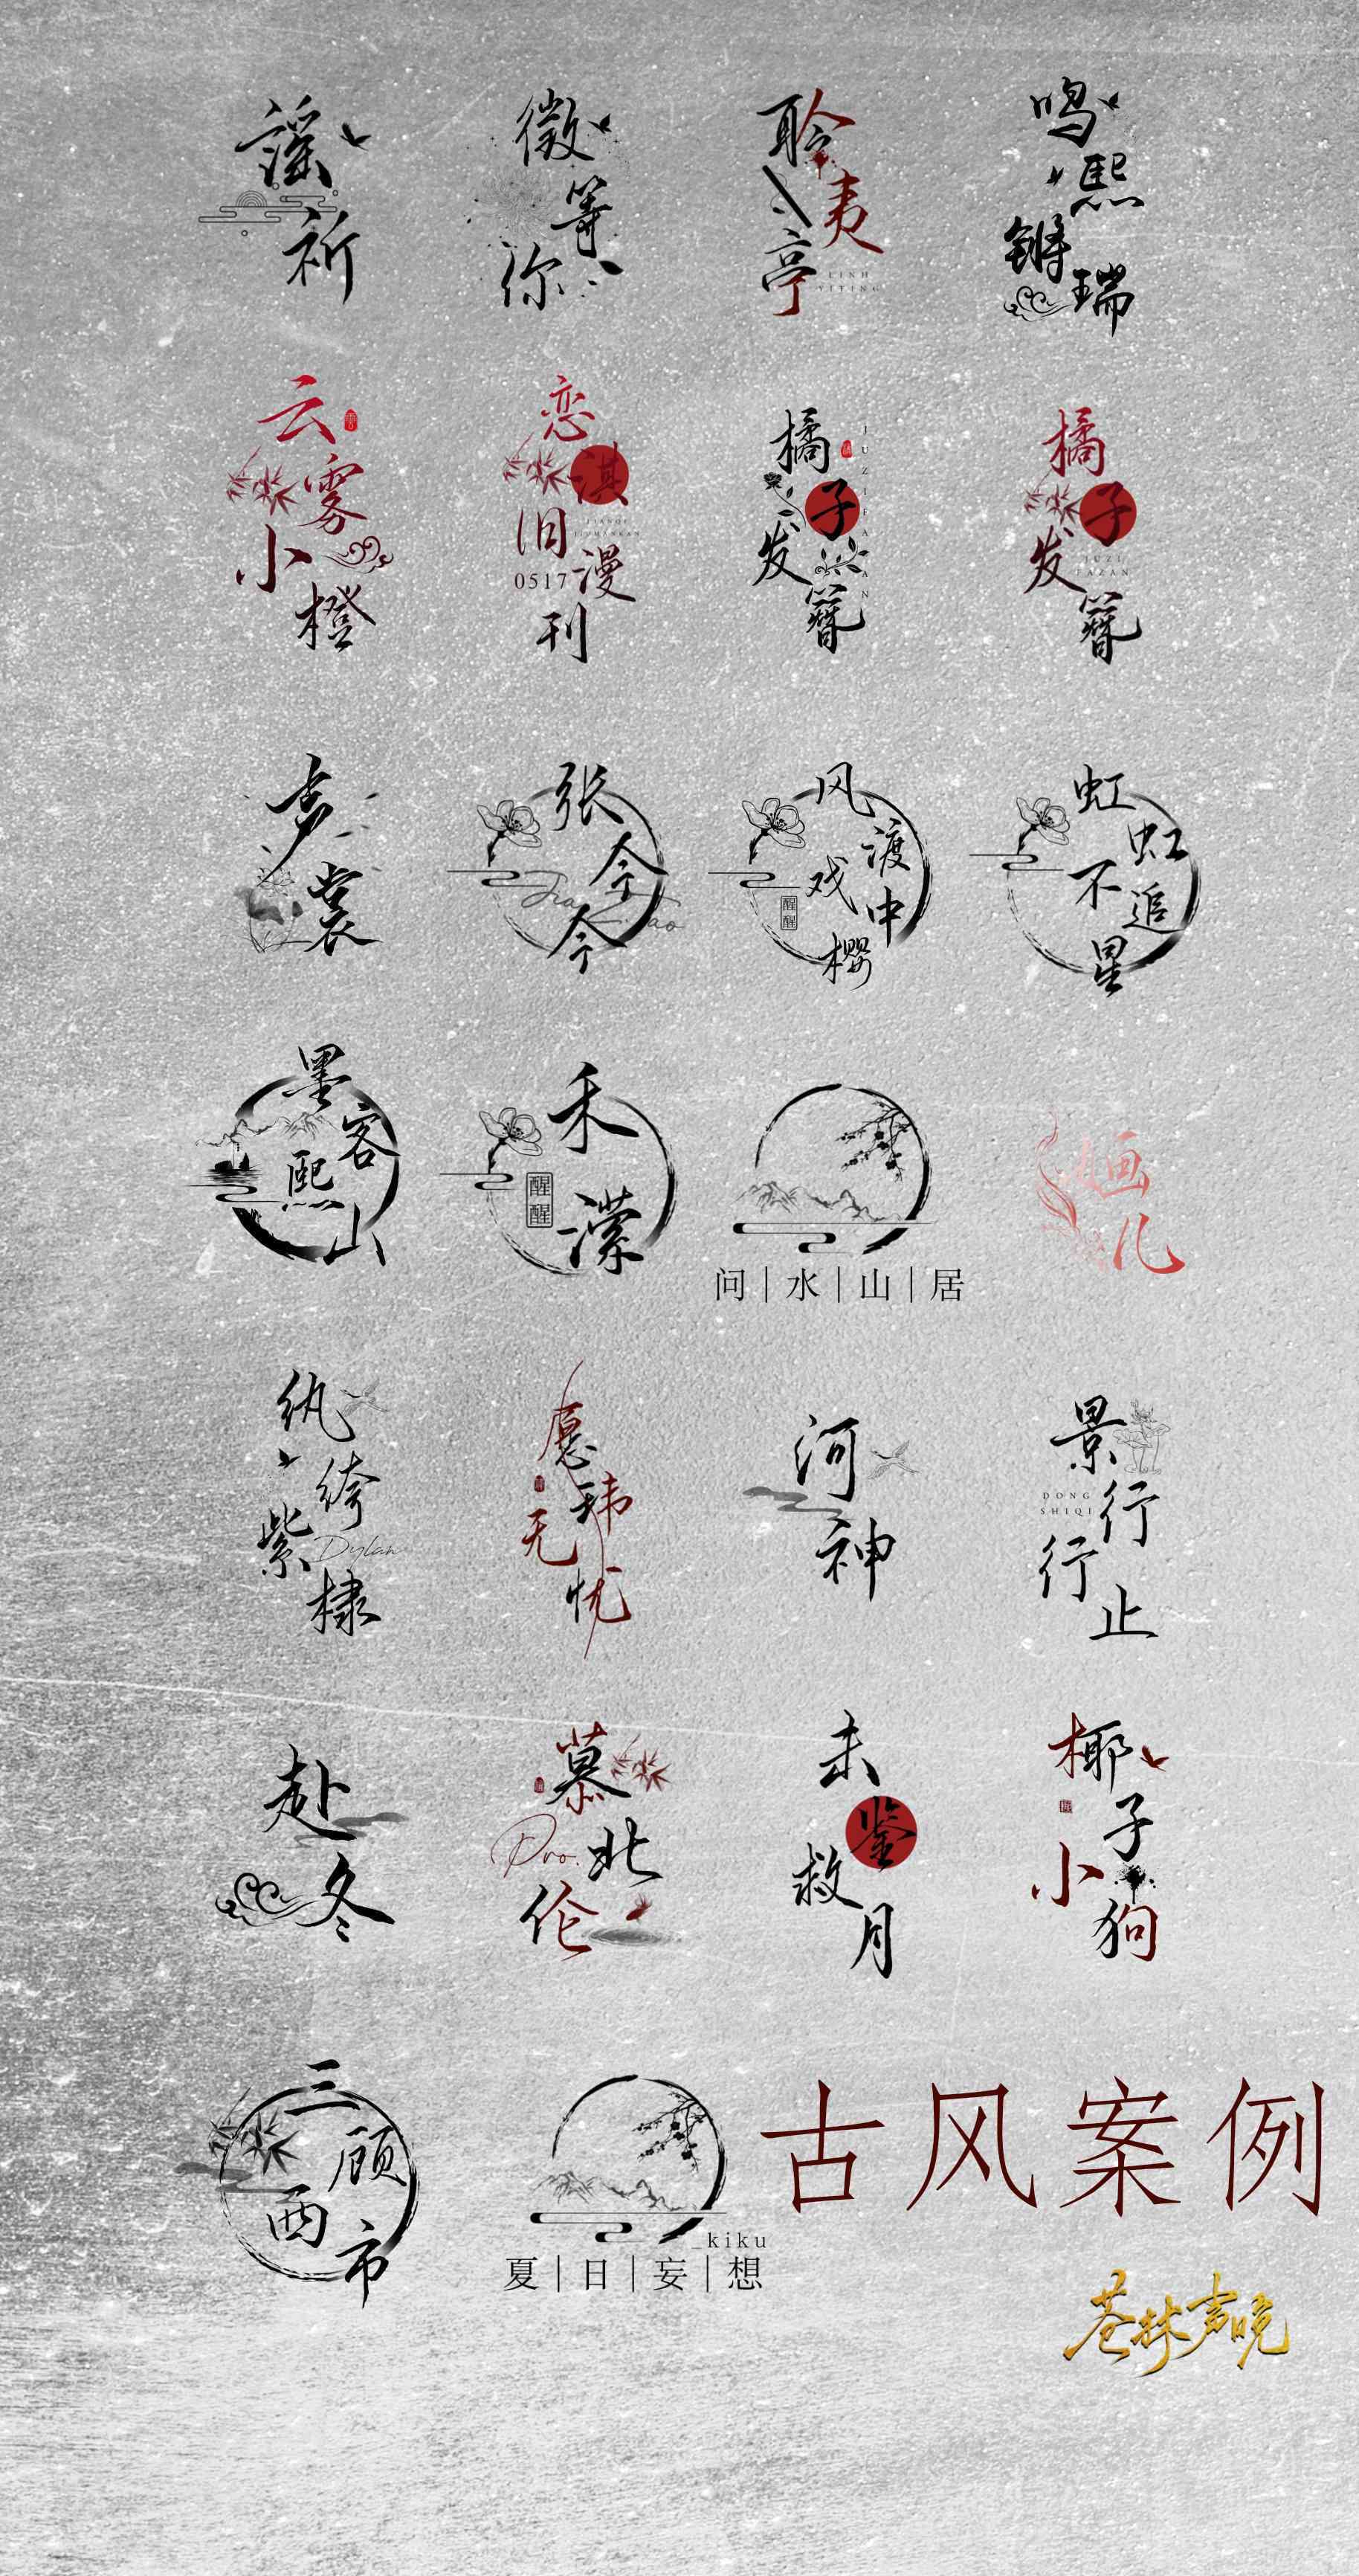 谣祈
徵等你
聆夷亭
LINH
YITING
鸣熙锵瑞
云雾小橙
恋淇旧漫刊
LIANQI
JIUMANKAN
0517
橘子发簪
JUZIFAZAN
橘子发簪
JUZI
FAZAN
声裳
张今今
风渡戏中樱
醒醒
虹虹不追星
墨客熙山
禾濛
醒醒
问|水|山|居
画儿
纨绔紫棣
Dylan
愿玮无忧
河神
景行行止
DONG
SHIQI
赴冬
慕北伦
Pro.
未鉴救月
椰子小狗
三顾西市
_kiku
夏|日|妄|想
古风案例
苍林声晚